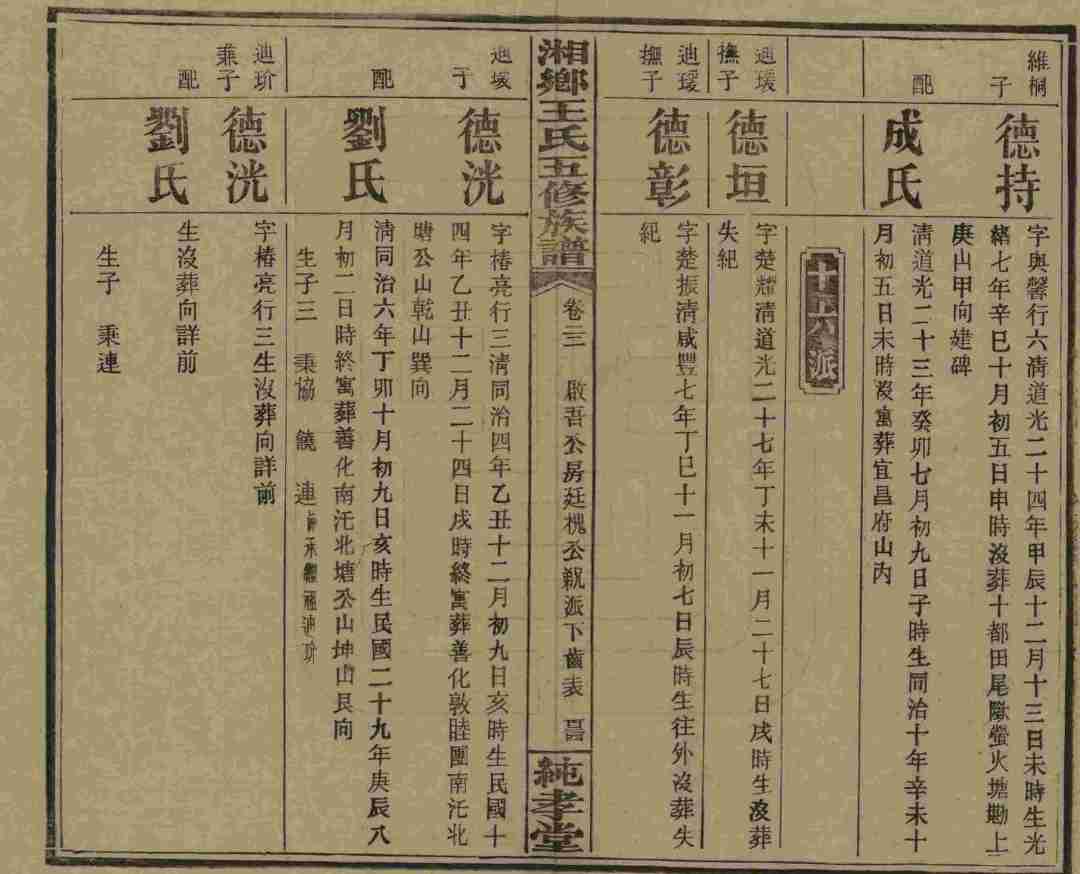 維桐
子
德持
字與馨行六清道光二十四年甲辰十二月十三日未時生光
緒七年辛巳十月初五日申時沒葬十都田尾螢火塘勘上
庚山甲向建碑
配
成氏
清道光二十三年癸卯七月初九日子時生同治十年辛未十
月初五日未時沒寓葬宜昌府山內
十六派
迪瑗
撫子
德垣
字楚耀清道光二十七年丁未十一月二十七日戌時生沒葬
失紀
迪瑗
撫子
德彰
字楚振清咸豐七年丁巳十一月初七日辰時生往外沒葬失
紀
湘鄉王氏五修族譜
卷二三
啟吾公房廷槐公親派下齒表
純孝堂
迪瑗
子
德洸
字椿亮行三清同治四年乙丑十二月初九日亥時生民國十
四年乙丑十二月二十四日戌時終寓葬善化敦睦團南汑北
塘公山乾山巽向
配
劉氏
清同治六年丁卯十月初九日亥時生民國二十九年庚辰八
月初二日時終寓葬善化南汑北塘公山坤山艮向
生子三 秉協 饒 連
迪玠
兼子
德洸
字椿亮行三生沒葬向詳前
配
劉氏
生沒葬向詳前
生子 秉連